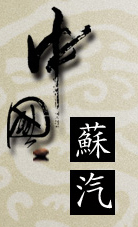 中國
蘇
汽